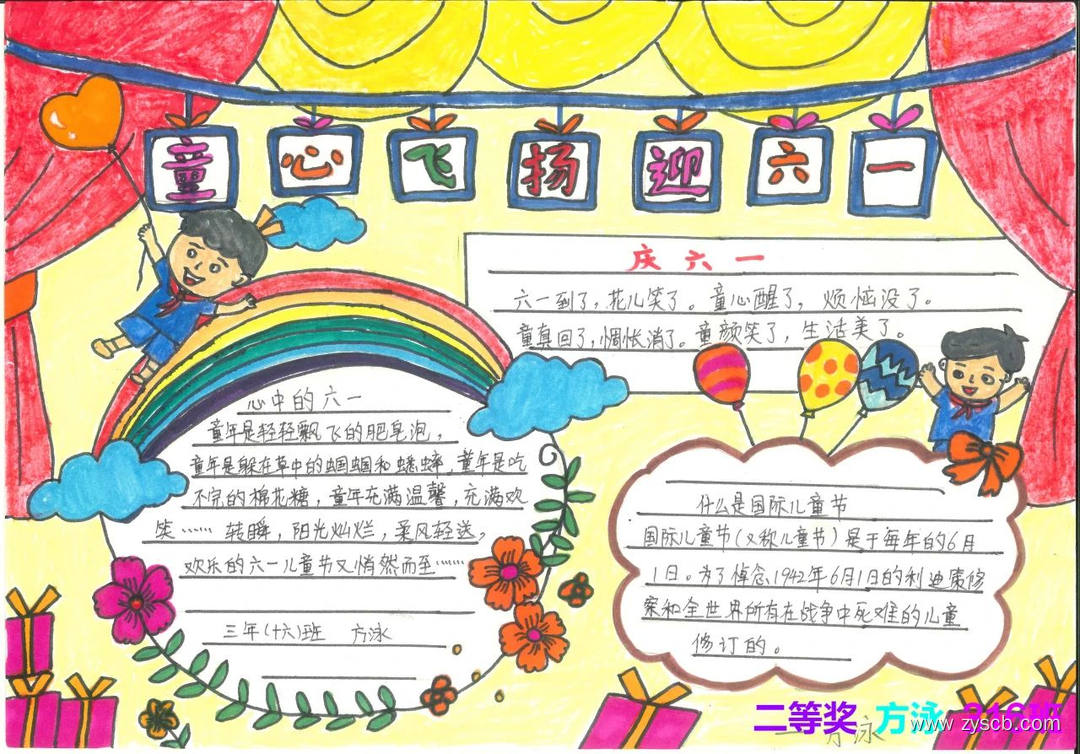 童心飞扬迎六一
庆六一
六一到了，花儿笑了。童心醒了，烦恼没了。
童真回了，惆怅消了。童颜笑了，生活美了。
心中的六一
童年是轻轻飘飞的肥皂泡，
童年是躲在草中的蝈蝈和蟋蟀，童年是吃
不完的棉花糖，童年充满温馨，充满欢
笑…… 转瞬，阳光灿烂，柔风轻送，
欢乐的六一儿童节又悄然而至……
三年（十六）班 方泳
什么是国际儿童节
国际儿童节（又称儿童节）是于每年的6月
1日。为了悼念1942年6月1日的利迪策修
案和全世界所有在战争中死难的儿童
修订的。
二等奖 方泳 316班
www.zyscb.com